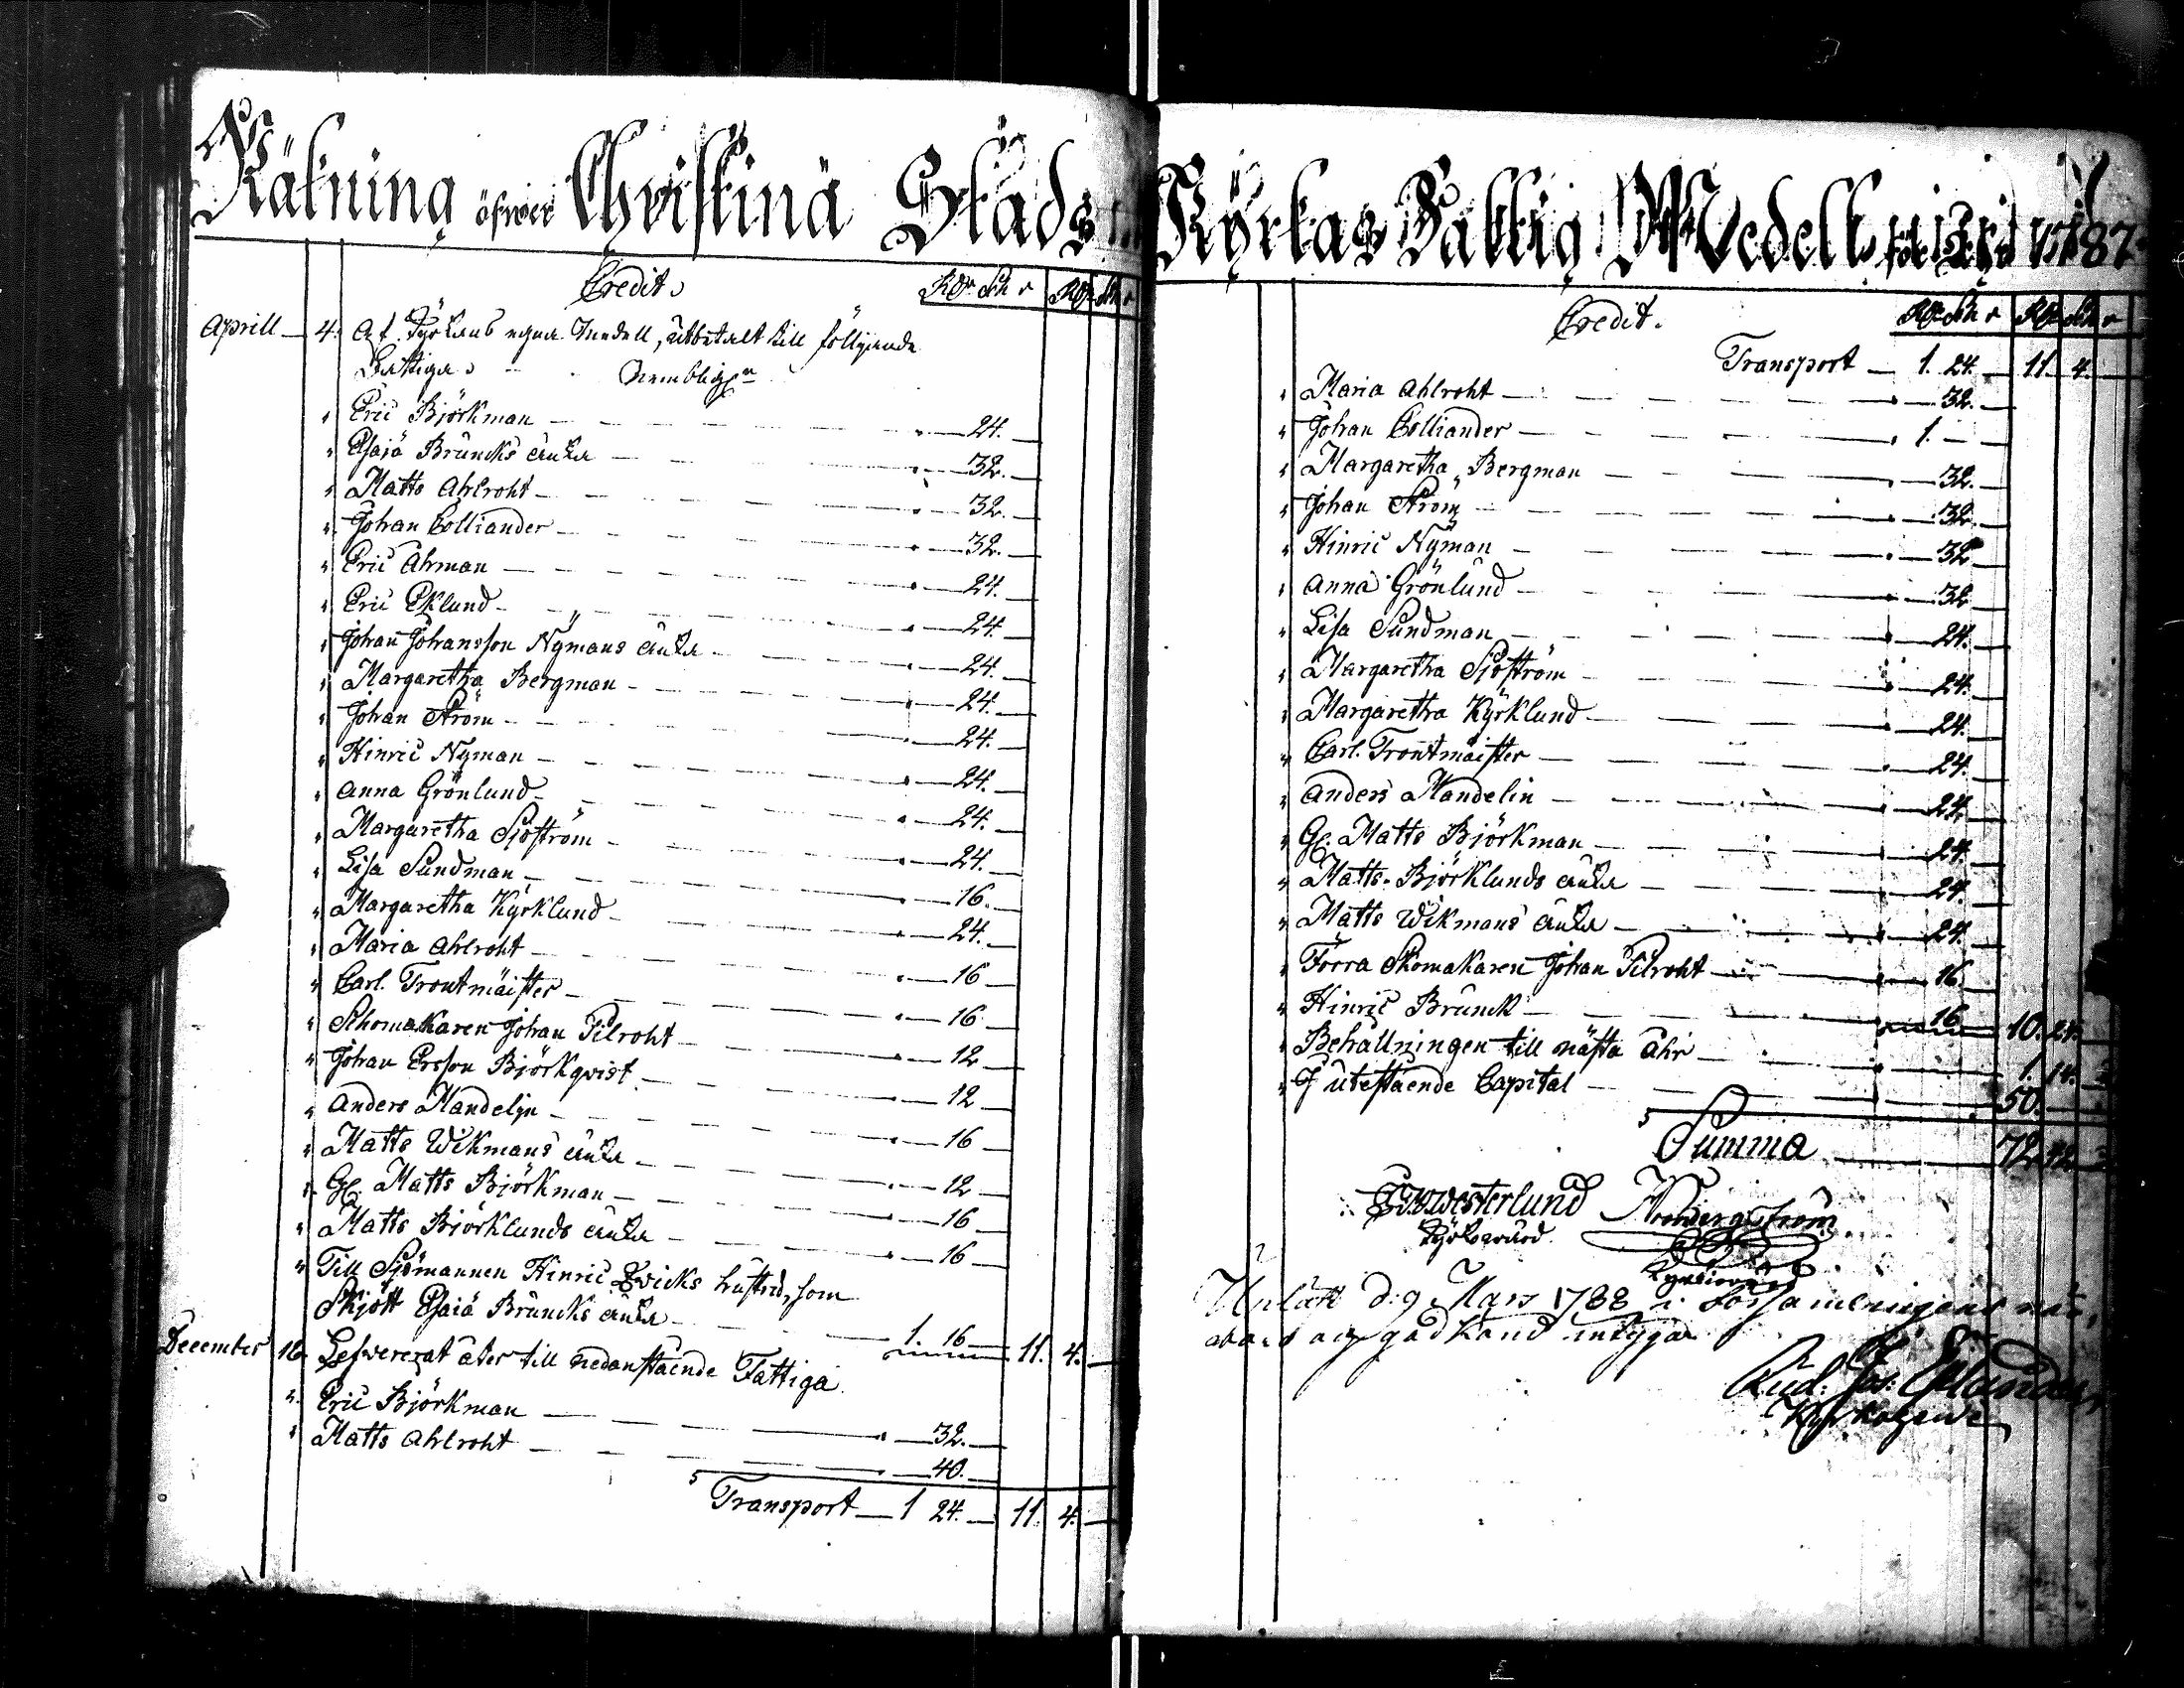 Räkning öfwer Christinä Stads
Credit. Rdr Sch r Rdr Sch r
Aprill 4. Af Kyrkans egna Medell, utbetalt tillföllgiande
Fattiga Nembligen
" Eric Björkman 24.
" Esaiä Bruncks änka 32.
" Matts Ahlroht 32.
" Johan Colliander 32.
" Eric Åhman 24.
" Eric Eklund 24.
" Johan Johansson Nÿmans änka 24.
" Margaretha Bergman 24.
" Johan Ström 24.
" Hinric Nÿman 24.
" Anna Grönlund 24.
" Margaretha Sjöström 24.
" Lisa Sundman 16.
" Margaretha Kÿrklund 24.
" Maria Ahlroht 16
" Carl. Trontmäister 16.
" Skomakaren Johan Pilroht 12
" Johan Ersson Björkqvist 12
" Anders Mandelin 16
" Matts Wikmans änka 12
" Gl. Matts Björkman 16
" Matts Björklunds änka 16
" Till Sjömannen Hinric hustrud, som
Skjött Esaiä Bruncks änka 1. 16
December 16 Lefwererat åter till nedanstående Fattiga 11. 4.
" Eric Björkman 32.
" Matts Ahlroht 40.
Transport 1 24. 11. 4.
Kÿrkas Fattig Medell för åhr 1787.
Credit. Rdr Sch r Rdr Sch r
Transport 1. 24. 11. 4.
" Maria Ahlroht 32.
" Johan Colliander 1.
" Margaretha Bergman 32.
" Johan Ström 32.
" Hinric Nÿman 32
" Anna Grönlund 32
" Lisa Sundman 24.
" Margaretha Sjöström 24.
" Margaretha Kÿrklund 24.
" Carl. Trontmäister 24.
" Anders Mandelin 24.
" Gl. Matts Björkman 24.
" Matts Björklunds änka 24.
" Matts Wikmans änka 24.
" Förra Skomakaren Johan Pilroht 16.
" Hinric Brunck 16 10. 24.
" Behållningen till nästa åhr 1. 14.
" I utestående Capital 50.
Summa 72. 42.
Westerlund
Kyrkowärd
Kyrkiowärd
Upläst d: 9 Mars 1788 i Församlingens när,
varo och godkänd intygar
Kyrkoherde